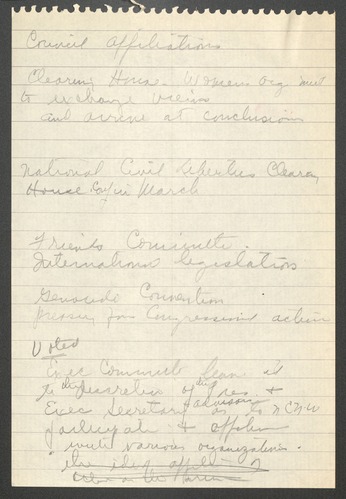 Council Affiliations
Clearing House - Womens Org meet
to exchange views
and arrive at conclusions
National Civil Liberties Clearing
House in March
Friends Committee
International legislation
Genocide Convention
for Congressional action
Voted
Exec Committee
to the discretion of the Pres. &
Exec Secretary as to NCNW
&
with various organizations
the idea